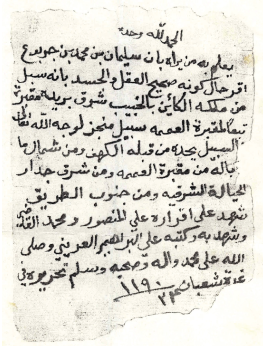 الحمد لله وحده
يعلم به من يراه بان سليمان بن محمد بن جويرع
اقر حال كونه صحيح العقل والجسد بانه سبل
من ملكه الكائن بالجبيب شرق بريدة مقبرة
تبعا لمقبرة العميه سبيل منجز لوجه الله تعالى
السبيل يحده من قبله الكهف ومن شمال ما
ياله من مقبرة العميه ومن شرق جدار
الحيالة الشرقيه ومن جنوب الطريق
شهد على اقراره علي المنصور ومحمد
وشهد به وكتبه علي ابراهيم العريني وصلى
الله على محمد واله وصحبه وسلم تحريره في
غرة شعبان ١١٩٠